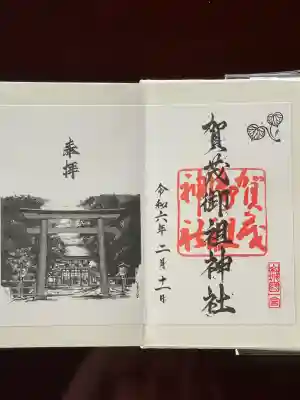 賀茂御祖神社
令和六年 二月十一日
奉拝
賀茂
御祖
神社
山城國一宮